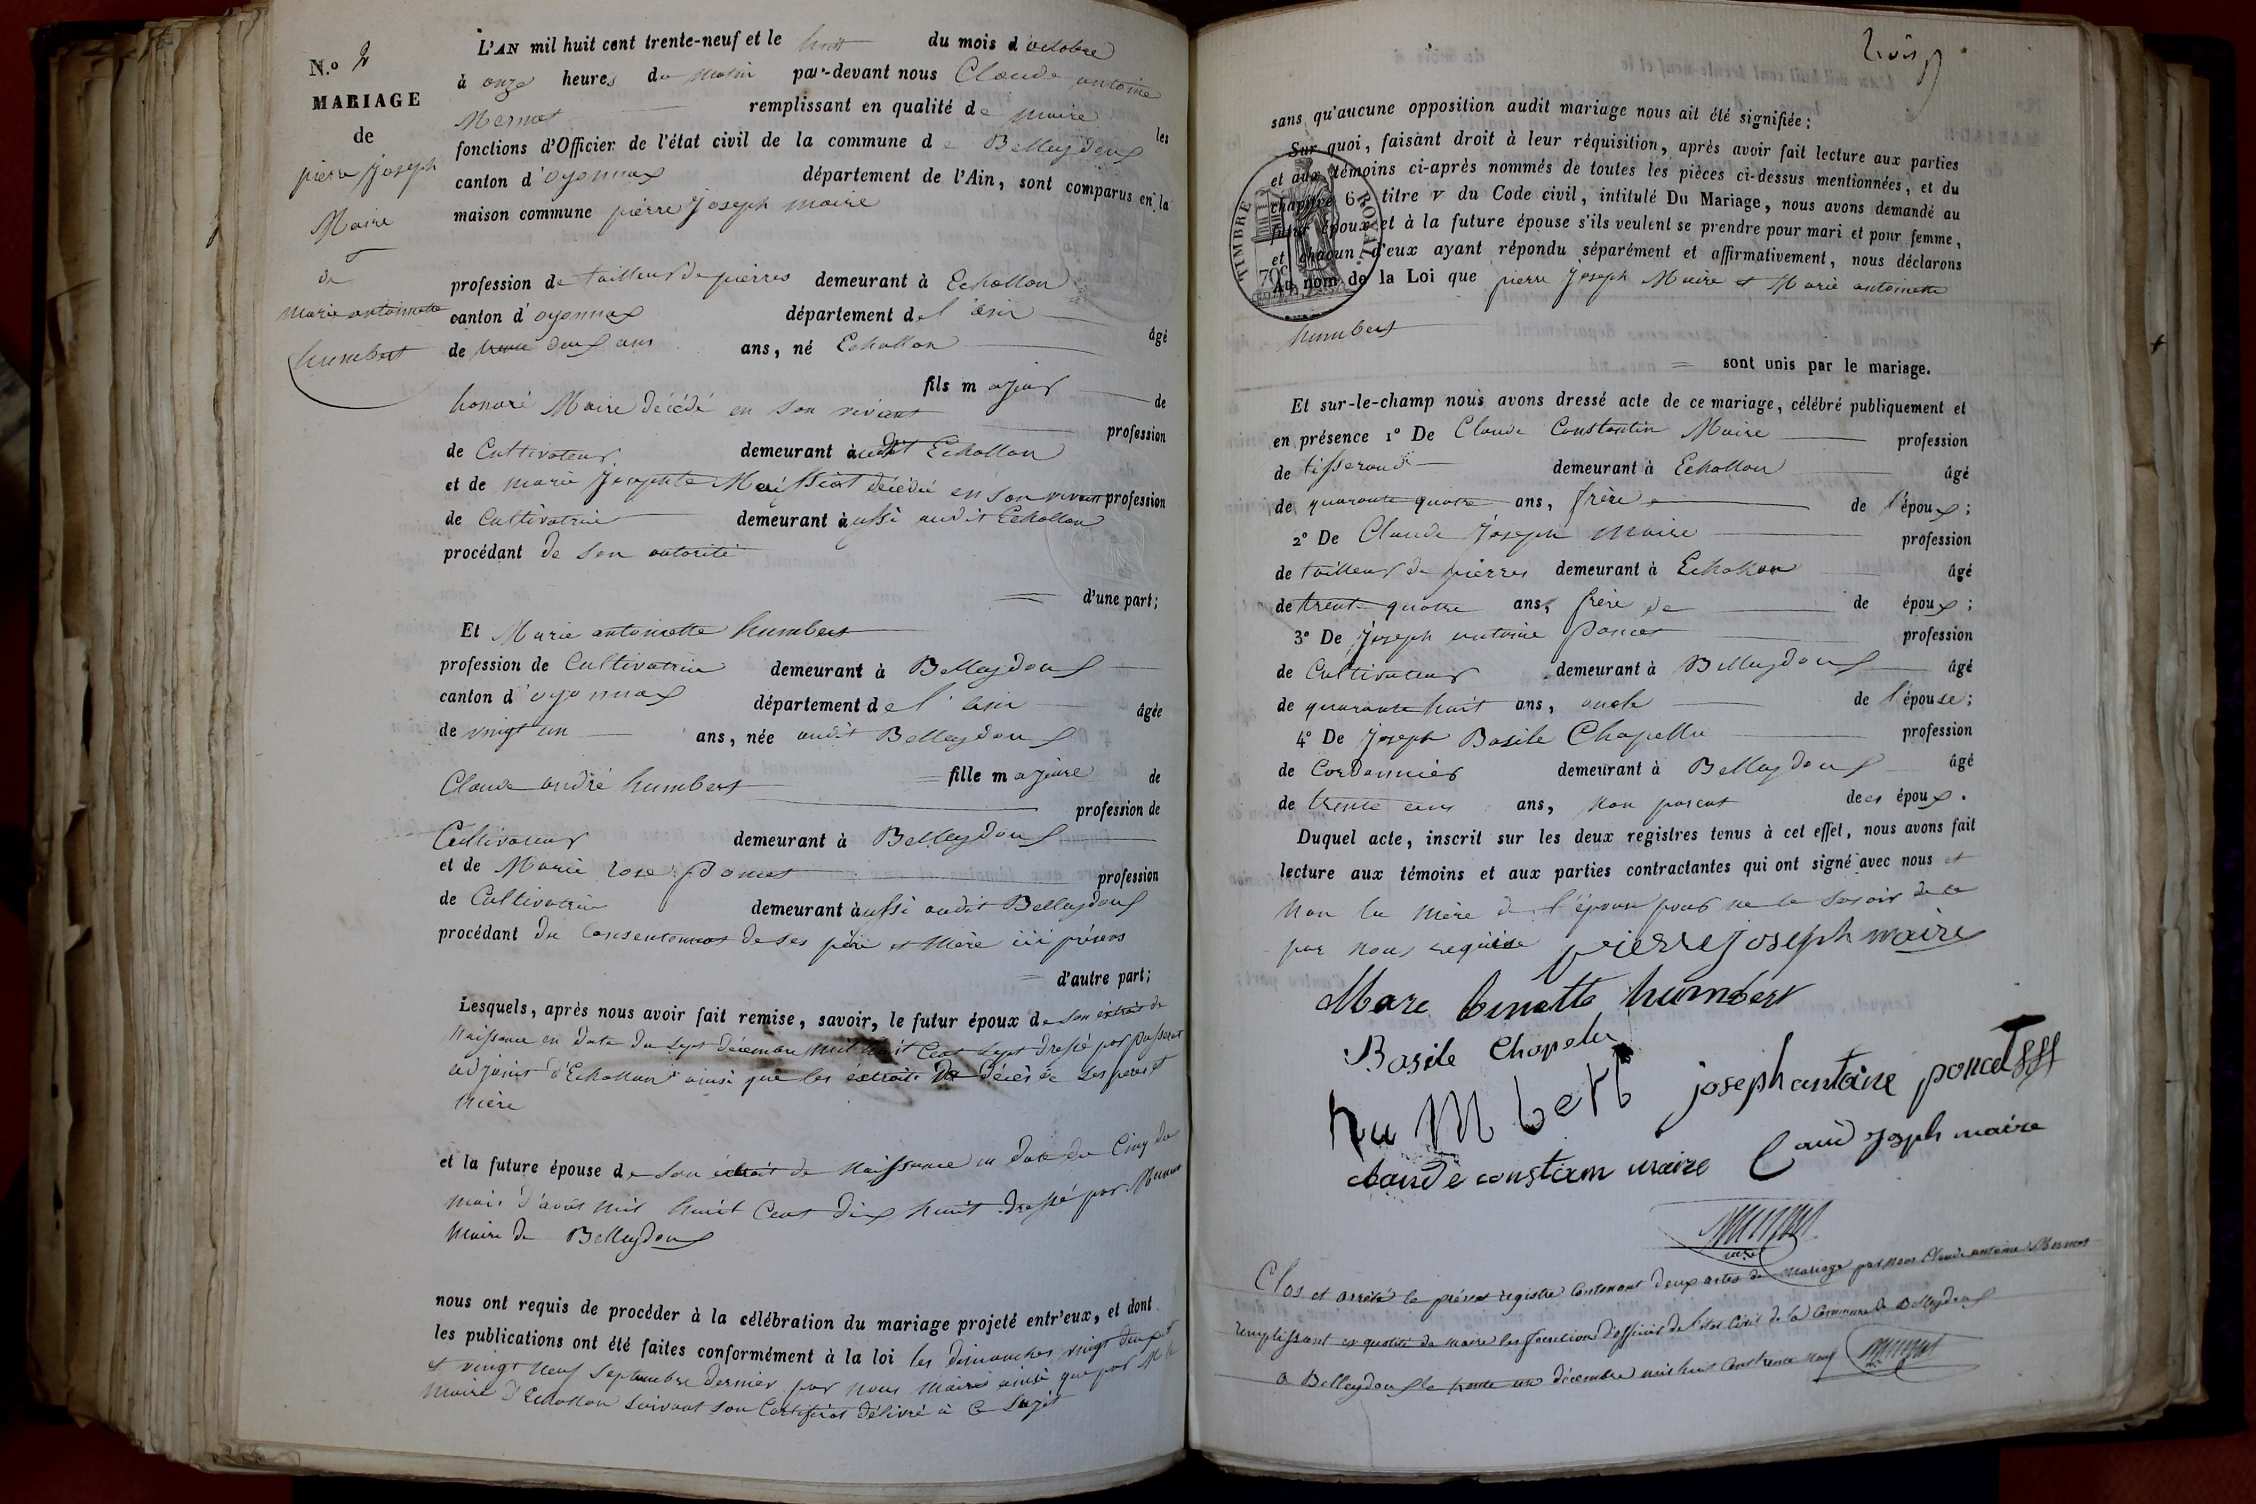 N.o 2
MARIAGE
de
pierre Joseph
Maire
de
marie antoinette
humbert
L'AN mil huit cent trente-neuf et le huit du mois d'octobre
à onze heures du matin par-devant nous Claude antoine
Mermet remplissant en qualité de maire les
fonctions d'Officier de l'état civil de la commune de Belleydoux
canton d'oyonnax département de l'Ain, sont comparus en la
maison commune pierre Joseph maire
profession de tailleur de pierres demeurant à Echallon
canton d'oyonnax département de l'ain âgé
de trente deux ans ans, né Echallon
fils majeur de
honoré Maire décédé en son vivant profession
de Cultivateur demeurant audit Echallon
et de marie Josephte décédée en son vivant profession
de Cultivatrice demeurant aussi audit Echallon
procédant de son autorité
d'une part;
Et Marie antoinette humbert
profession de Cultivatrice demeurant à Belleydoux
canton d'oyonnax département de l'ain âgée
de vingt un ans, née audit Belleydoux
fille majeure de
Claude andré humbert profession de
Cultivateur demeurant à Belleydoux
et de Marie rose poncet profession
de Cultivatrice demeurant aussi audit Belleydoux
procédant du Consentement de ses père et mère ici présens
d'autre part;
Lesquels, après nous avoir fait remise, savoir, le futur époux de son extrait de
Naissance en date du sept décembre mil huit Cent sept dressé par
adjoint d'Echallon ainsi que les extraits de décès de ses pere et
mère
et la future épouse de son extrait de Naissance en date du Cinq du
mois d'avût mil huit Cent dix huit dressé par
Maire de Belleydoux
nous ont requis de procéder à la célébration du mariage projeté entr'eux, et dont
les publications ont été faites conformément à la loi les dimanches vingt deux
et vingt neuf septembre dernier par nous maire ainsi que par Mr le
maire d'Echallon suivant son Certificat délivré à Ce sujet
trois
TIMBRE ROYAL
70c
sans qu'aucune opposition audit mariage nous ait été signifiée;
Sur quoi, faisant droit à leur réquisition, après avoir fait lecture aux parties
et aux témoins ci-après nommés de toutes les pièces ci-dessus mentionnées, et du
chapitre 6, titre V du Code civil, intitulé Du Mariage, nous avons demandé au
futur époux et à la future épouse s'ils veulent se prendre pour mari et pour femme,
et chacun d'eux ayant répondu séparément et affirmativement, nous déclarons
Au nom de la Loi que pierre Joseph Maire et Marie antoinette
humbert
sont unis par le mariage.
Et sur-le-champ nous avons dressé acte de ce mariage, célébré publiquement et
en présence 1º De Claude Constantin Maire profession
de tisserand demeurant à Echallon âgé
de quarante quatre ans, frère de l'époux;
2º De Claude Joseph maire profession
de tailleur de pierres demeurant à Echallon âgé
de trente quatre ans, frère de de époux;
3º De Joseph antoine Poncet profession
de Cultivateur demeurant à Belleydoux âgé
de quarante huit ans, oncle de l'épouse;
4º De Joseph Basile Chapelle profession
de Cordonnier demeurant à Belleydoux âgé
de trente ans, non parent des époux.
Duquel acte, inscrit sur les deux registres tenus à cet effet, nous avons fait
lecture aux témoins et aux parties contractantes qui ont signé avec nous et
Non la mère de l'épouse pour ne le savoir de ce
par nous requise pierre joseph maire
humbert
Basile Chapelu
humbert joseph antoine poncet
claude constam maire Caud joseph maire
Clos et arrêté le présent registre Contenant deux actes de mariage par nous Claude antoine Mermet
remplissant en qualité de maire les fonctions d'officier de l'état Civil de la Commune de Belleydoux
a Belleydoux le trente un décembre mil huit Cent trente neuf